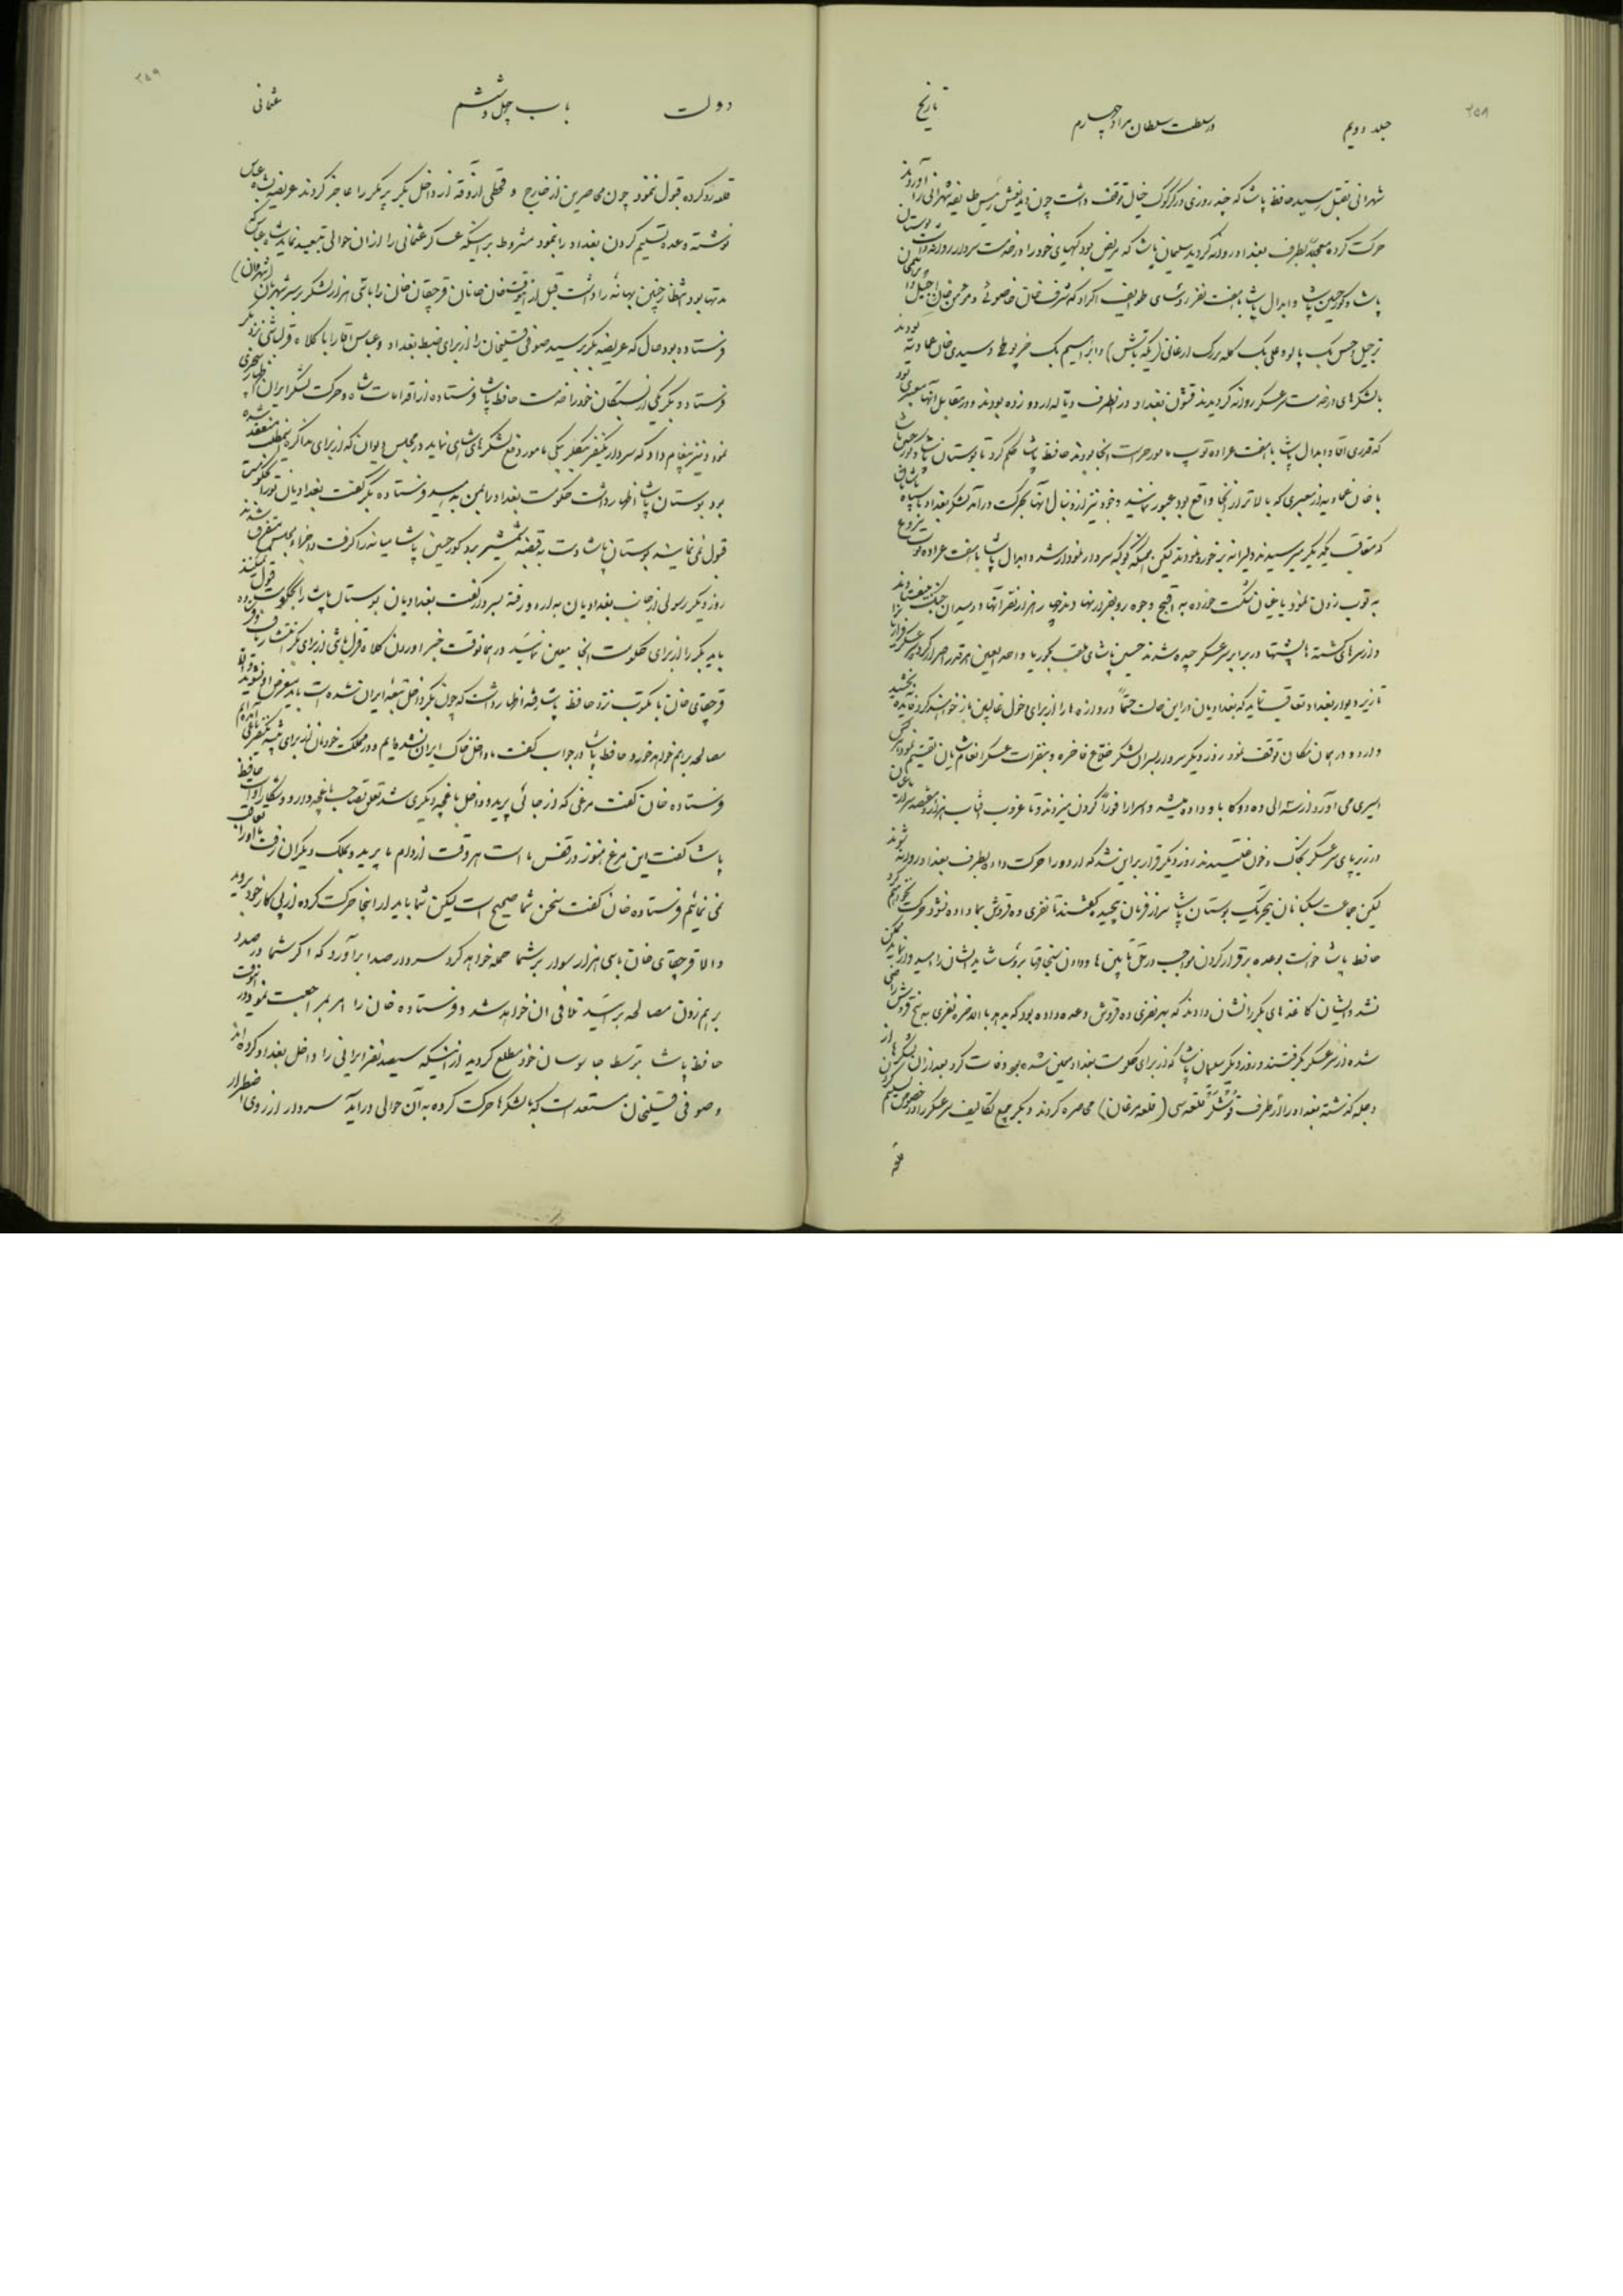 ۲۵۸
جلد دویم
در سلطنت سلطان مراد چهارم
تاریخ
شهرانی بقتل رسید حافظ پاشا که چند روزی در کرکوک خیال توقف داشت چون دید نعش رئیس طایفه شهرانی را آوردند
حرکت کرده معجلاً بطرف بغداد روانه گردید سلیمان پاشا که مریض بود کهیای خود را در خدمت سردار روانه داشت بوستان
پاشا و کور حسین پاشا و ابدال پاشا با هفت نفر رؤسای طوایف اکراد که شرف خان
بالشکرهای در خدمت سرعسکر روانه گردیدند قشون بغداد در نطرف دیاله اردو زده بودند و در مقابل آنها معبری بود
که قدری آقا و ابدال پاشا با هفت عراده توپ مامور حراست انجا بودند حافظ پاشا حکم کرد تا بوستان پاشا و کور حسین پاشا
با خان عمادیه از معبری که بالاتر از انجا واقع بود عبور نمایند و خود نیز از دنبال آنها بحرکت درآمد لشکر بغداد با سپاه
که متعاقب یکدیگر میرسیدند دلیرانه بر خورد نمودند لیکن همینکه کوکبه سردار نمودار شد و ابدال پاشا با هفت عراده توپ شروع
به توپ زدن نمود یاغیان شکست خورده به اقبح وجوه رو بفرار نهادند چهار هزار نفر از آنها در میدان جنگ
و از سرهای کشته ها پشتها در برابر سرعسکر چیده شدند حسین پاشای
تا زیر دیوار بغداد تعاقب نماید که بغدادیان در این حالت حتماً دروازه ها را از برای دخول غالبین باز خواهند کرد فایده نبخشید
و اردو در همان مکان توقف نمود روز دیگر سردار بسران لشکر خلع فاخره و بنفرات عسکر انعام شایان تقسیم نمود هرکس
اسیری می آورد از سه الی ده دوکا باو داده میشد و اسرا را فوراً گردن میزدند و تا غروب آفتاب
در زیر پای سرعسکر بخاک و خون غلتیدند روز دیگر قرار بر این شد که اردو را حرکت داده بطرف بغداد روانه شوند
لیکن جماعت سکبانان بتحریک بوستان پاشا سر از فرمان پیچیده گفتند تا نفری ده قروش بما داده نشود حرکت نخواهیم کرد
حافظ پاشا خواست بوعده برقرار کردن مواجب در حق تابین ها و دادن سنجاقها برؤسا شاید ایشان را امیدوار نماید ممکن
نشد و ایشان کاغذهای بکر را نشان دادند که بهر نفری ده قروش وعده داده بود که بدهد بالاخره نفری به پنج قروش راضی
شده از سرعسکر بگرفتند و روز دیگر سلیمان پاشا که از برای حکومت بغداد معین شده بود وفات کرد بعد از آن لشکرها از
دجله گذشته بغداد را از طرف قوشلر قلعه سی (قلعه مرغان) محاصره کردند و بکر جمیع تکالیف سرعسکر را در خصوص تسلیم کردن
قلعه
۲۵۹
دولت
باب چهل و ششم
عثمانی
قلعه رد کرده قبول ننمود چون محاصرین از خارج و قحطی آزوقه از داخل بکر پر مکر را عاجز کردند عریضه بشاه عباس
نوشته وعده تسلیم کردن بغداد را نمود مشروط بر اینکه عساکر عثمانی را از آن حوالی تبعید نماید شاه عباس که
مدتها بود انتظار چنین بهانه را داشت قبل از آنوقت خان خانان قرچقای خان را با سی هزار لشکر بر سر شهربان (شهروان)
فرستاده بود حال که عریضه بکر رسید صوفی قلیخان را از برای ضبط بغداد و عباس آقا را با کلاه قزلباشی نزد بکر
فرستاد و بکر یکی از بستگان خود را خدمت حافظ پاشا فرستاده از اقدامات شاه و حرکت لشکر ایران اظهار
نمود و نیز پیغام داد که سردار
بود بوستان پاشا اظهار داشت حکومت بغداد را بمن بدهید فرستاده بکر گفت بغدادیان تو را بحکومت
قبول نمی نمایند بوستان پاشا دست به قبضه شمشیر برد کور حسین پاشا میانه را گرفت و اجزاء مجلس متفرق شدند
روز دیگر رسولی از جانب بغدادیان به اردو رفته بسردار گفت بغدادیان بوستان پاشا را بحکومت قبول نکنند
باید بکر را از برای حکومت انجا معین نمائید در همانوقت خبر آوردن کلاه قزلباشی از برای بکر انتشار یافت
قرچقای خان با مکتوب نزد حافظ پاشا رفته اظهار داشت که چون بکر داخل تبعه ایران شده است باید متعرض او نشوید و الا
مصالحه برهم خواهد خورد حافظ پاشا در جواب گفت ما داخل خاک ایران نشده ایم و در مملکت خودمان از برای تنبیه
فرستاده خان گفت مرغی که از جائی پرید و داخل باغچه دیگری شد تعلق بصاحب باغچه دارد و شکار اوست حافظ
پاشا گفت این مرغ هنوز در قفس ما است هر وقت از دام ما پرید و بملک دیگران رفت ما او را تعاقب
نمی نمائیم فرستاده خان گفت سخن شما صحیح است لیکن شما باید از اینجا حرکت کرده از پی کار خود بروید
والا قرچقای خان با سی هزار سوار بر شما حمله خواهد کرد سردار صدا برآورد که اگر شما در صدد
برهم زدن مصالحه برآئید تلافی آن خواهد شد و فرستاده خان را امر بمراجعت نمود در آنوقت
حافظ پاشا بتوسط جاسوسان خود مطلع گردید از اینکه سیصد نفر ایرانی را داخل بغداد کرده اند
و صوفی قلیخان مستعد است که با لشکرها حرکت کرده به آن حوالی درآید سردار از روی اضطرار